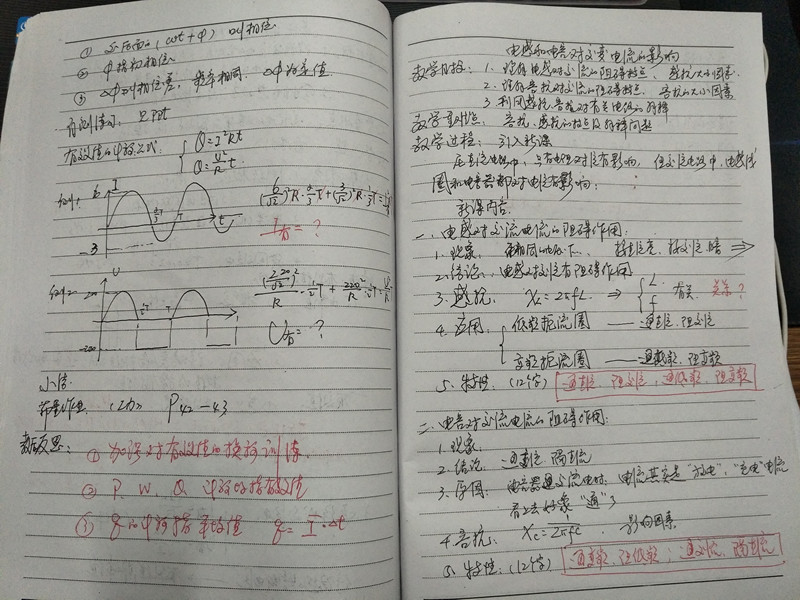 ① 正弦函数后面的(ωt+φ) 叫相位
② φ指初相位
③ Δφ叫相位差, 频率相同, Δφ为定值
有效值的计算公式: Q=I²Rt
Q=U²/R t
例1: 6 I T t
-3
(6/√2)²R·
I有=?
例2: 220 U
-220
(220/√2)²/R·½T+220²/R·½T=
U有=?
小结
布置作业 《动》 P42-43
教后反思: ① 加强对有效值的换算训练
② P、W、Q 计算均指有效值
③ q的计算指平均值 q=Ī·Δt
电感和电容对交变电流的影响
教学目标: 1. 理解电感对交流的阻碍特点、感抗大小因素.
2. 理解容抗对交流的阻碍特点、容抗的大小因素
3. 利用感抗、容抗对有关电路的解释
教学重难点: 容抗、感抗的特点及解释问题
教学过程: 引入新课
在直流电路中, 只有电阻对流有影响, 但交流电路中, 电感线
圈和电容器都对电流有影响;
新课内容:
一、电感对交流电流的阻碍作用:
1. 现象: 在相同的电压下, 接直流亮, 接交流暗 ⇒
2. 结论: 电感对交流有阻碍作用
3. 感抗: XL=2πfL ⇒ { L f 有关 关系?
4. 应用: 低频扼流圈 —— 通直流、阻交流
高频扼流圈 —— 通低频、阻高频
5. 特性: (12个字) 通直流、阻交流; 通低频、阻高频
二、电容对交流电流的阻碍作用:
1. 现象:
2. 结论: 通交流、隔直流
3. 原因: 电容器通交流电时, 电流其实是“放电”、“充电”电流
看上去好象“通”了
4. 容抗: Xc=1/2πfC 影响因素
5. 特性: (12个字) 通高频、阻低频; 通交流、隔直流